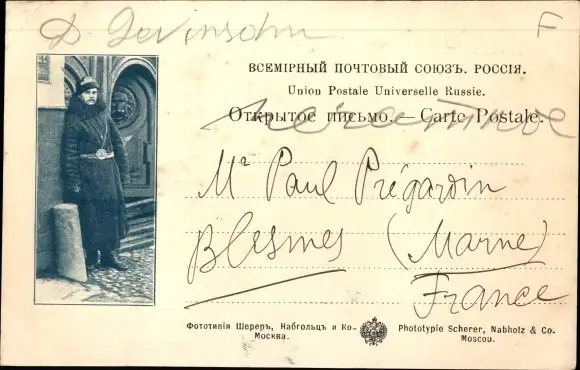 D. Levinsohn F
ВСЕМІРНЫЙ ПОЧТОВЫЙ СОЮЗЪ. РОССІЯ.
Union Postale Universelle Russie.
Открытое письмо. — Carte Postale.
Печатное
Mr Paul Prégardin
Blesmes (Marne)
France
Фототипія Шереръ, Набгольцъ и Ко-
Москва.
Phototypie Scherer, Nabholz & Co.
Moscou.